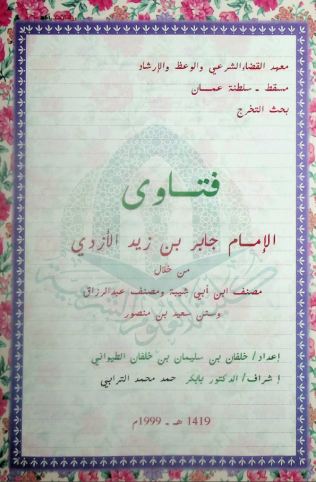 معهد القضاء الشرعي والوعظ والإرشاد
مسقط - سلطنة عمـــان
بحث التخرج
فتـــاوى
الإمـــام جابر بن زيد الأزدي
من خلال
مصنف ابن أبي شيبة ومصنف عبدالرزاق
وسنن سعيد بن منصور
إعداد/ خلفان بن سليمان بن خلفان الطيواني
إشراف/ الدكتور بابكر حمد محمد الترابي
1419 هـ - 1999م